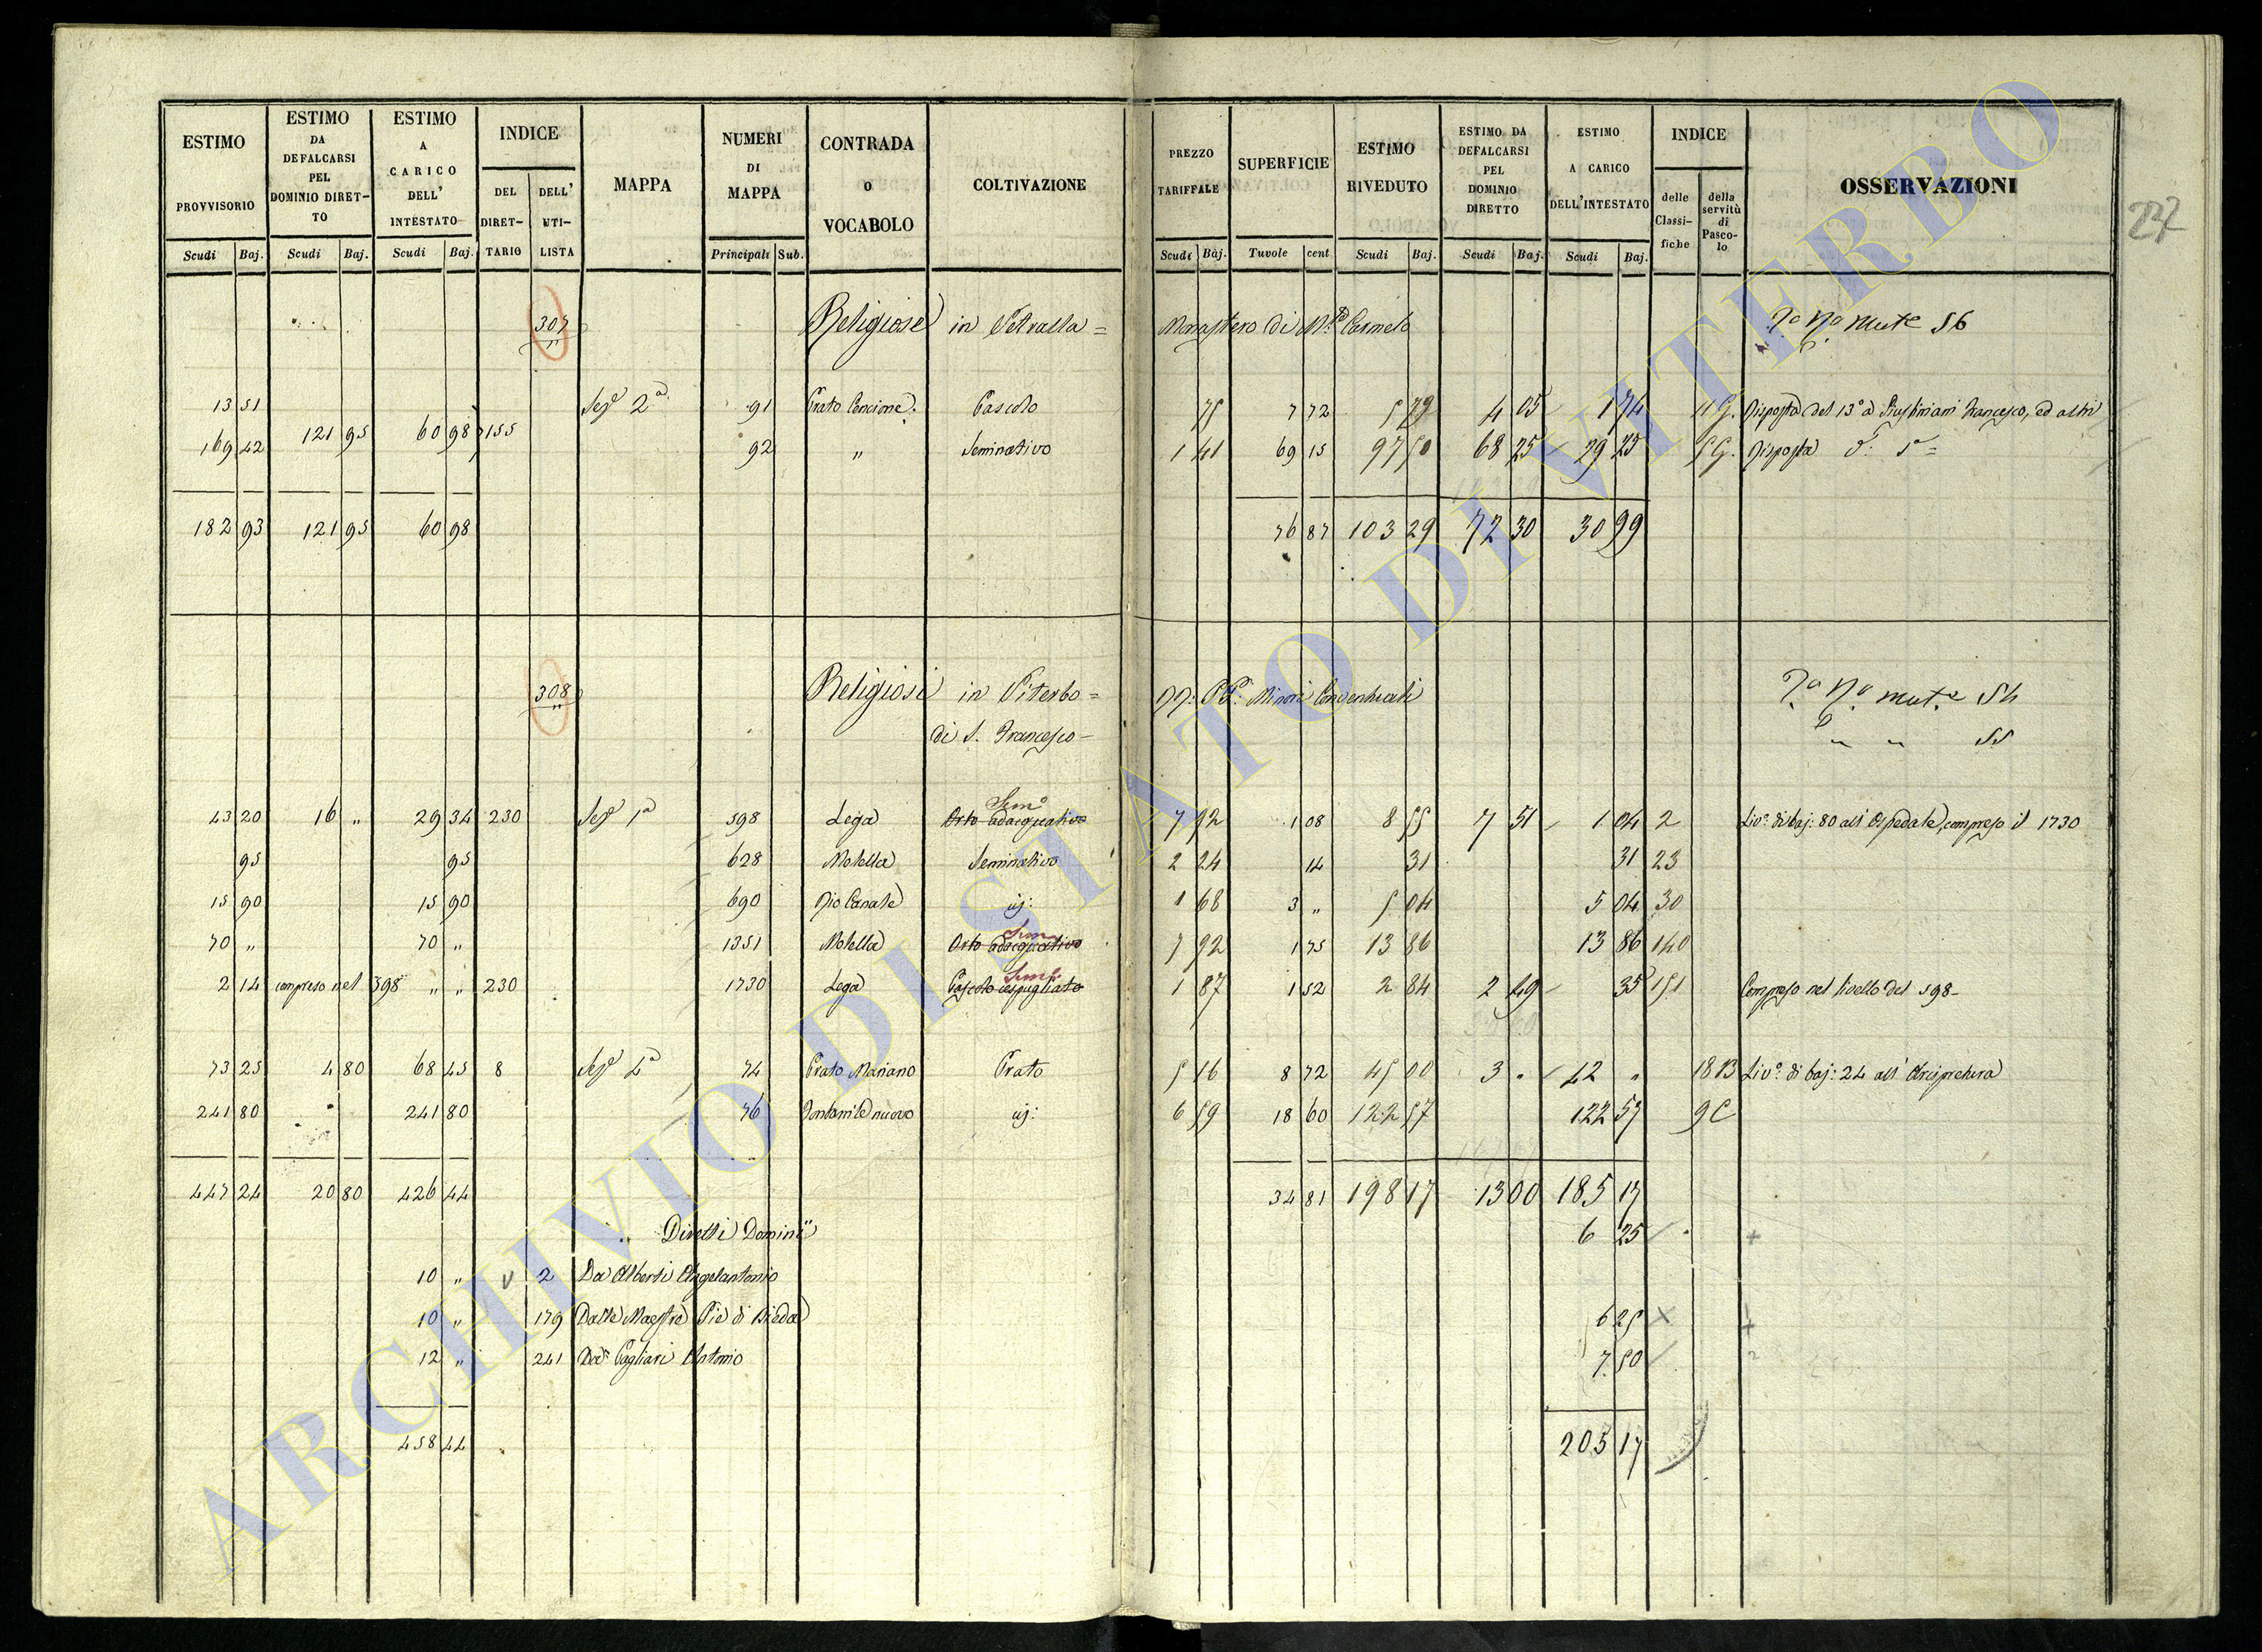 ESTIMO PROVVISORIO Scudi Baj.
ESTIMO DA DEFALCARSI PEL DOMINIO DIRET-TO Scudi Baj.
ESTIMO A CARICO DELL' INTESTATO Scudi Baj.
INDICE DEL DIRET-TARIO DELL' UTI-LISTA
MAPPA
NUMERI DI MAPPA Principali Sub.
CONTRADA O VOCABOLO
COLTIVAZIONE
PREZZO TARIFFALE Scudi Baj.
SUPERFICIE Tuvole cent
ESTIMO RIVEDUTO Scudi Baj.
ESTIMO DA DEFALCARSI PEL DOMINIO DIRETTO Scudi Baj.
ESTIMO A CARICO DELL'INTESTATO Scudi Baj.
INDICE delle Classi-fiche della servitù di Pasco-lo
OSSERVAZIONI
27
307 Religiose in Vetralla = Monastero di Mte Carmelo 56
13 51 Sez.e 2a 91 Prato Cencione Pascolo 75 7 72 5 79 4 05 1 74 11 G. Risposta del 13o a Giustiniani Francesco, ed altri
169 42 121 95 60 98 155 92 " Seminativo 1 41 69 15 97 50 68 25 29 25 5 G. Risposta
182 93 121 95 60 98 76 87 103 29 72 30 30 99
308 Religiosi in Viterbo = PP. Minori Conventuali 54
di S. Francesco - 55
43 20 16 " 29 34 230 Sez.e 1a 598 Lega Orto adacquativo Semo 7 92 1 08 8 55 7 51 1 04 2 Livo: di baj: 80 all'Ospedale, compreso il 1730
95 95 628 Molella Seminativo 2 24 14 31 31 23
15 90 15 90 690 Rio Canale 1 68 3 " 5 04 5 04 30
70 " 70 " 1351 Molella Orto adacquativo Sem 7 92 1 75 13 86 13 86 140
2 14 compreso nel 598 " " 230 1730 Lega Pascolo cespugliato Semo 1 87 1 52 2 84 2 49 35 151 Compreso nel livello del 598 -
73 25 4 80 68 45 8 Sez.e 4a 74 Prato Mariano Prato 5 16 8 72 45 00 3 " 42 " 18 B Livo: di baj: 24 all' Arcipretura
241 80 241 80 76 Fontanile nuovo 6 59 18 60 122 57 122 57 9 C
447 24 20 80 426 44 34 81 198 17 13 00 185 17
Diretti Dominii 6 25
10 " 2 Da Alberti Angelantonio
10 " 179 Dalle Maestre Pie di Bieda 6 25
12 " 241 Da Pagliari Antonio 7 50
458 44 205 17
ARCHIVIO DI STATO DI VITERBO